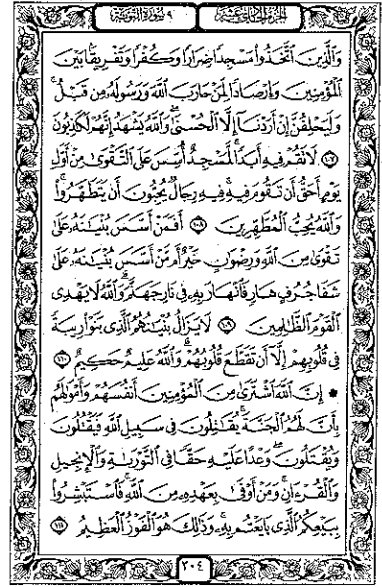 الجزء الحادي عشر ٩ سورة التوبة
وَالَّذِينَ اتَّخَذُوا مَسْجِدًا ضِرَارًا وَكُفْرًا وَتَفْرِيقًا بَيْنَ
الْمُؤْمِنِينَ وَإِرْصَادًا لِّمَنْ حَارَبَ اللَّهَ وَرَسُولَهُ مِن قَبْلُ
وَلَيَحْلِفُنَّ إِنْ أَرَدْنَا إِلَّا الْحُسْنَىٰ وَاللَّهُ يَشْهَدُ إِنَّهُمْ لَكَاذِبُونَ
١٠٧ لَا تَقُمْ فِيهِ أَبَدًا لَّمَسْجِدٌ أُسِّسَ عَلَى التَّقْوَىٰ مِنْ أَوَّلِ
يَوْمٍ أَحَقُّ أَن تَقُومَ فِيهِ فِيهِ رِجَالٌ يُحِبُّونَ أَن يَتَطَهَّرُوا
وَاللَّهُ يُحِبُّ الْمُطَّهِّرِينَ ١٠٨ أَفَمَنْ أَسَّسَ بُنْيَانَهُ عَلَىٰ
تَقْوَىٰ مِنَ اللَّهِ وَرِضْوَانٍ خَيْرٌ أَم مَّنْ أَسَّسَ بُنْيَانَهُ عَلَىٰ
شَفَا جُرُفٍ هَارٍ فَانْهَارَ بِهِ فِي نَارِ جَهَنَّمَ وَاللَّهُ لَا يَهْدِي
الْقَوْمَ الظَّالِمِينَ ١٠٩ لَا يَزَالُ بُنْيَانُهُمُ الَّذِي بَنَوْا رِيبَةً
فِي قُلُوبِهِمْ إِلَّا أَن تَقَطَّعَ قُلُوبُهُمْ وَاللَّهُ عَلِيمٌ حَكِيمٌ ١١٠
* إِنَّ اللَّهَ اشْتَرَىٰ مِنَ الْمُؤْمِنِينَ أَنفُسَهُمْ وَأَمْوَالَهُم
بِأَنَّ لَهُمُ الْجَنَّةَ يُقَاتِلُونَ فِي سَبِيلِ اللَّهِ فَيَقْتُلُونَ
وَيُقْتَلُونَ وَعْدًا عَلَيْهِ حَقًّا فِي التَّوْرَاةِ وَالْإِنجِيلِ
وَالْقُرْآنِ وَمَنْ أَوْفَىٰ بِعَهْدِهِ مِنَ اللَّهِ فَاسْتَبْشِرُوا
بِبَيْعِكُمُ الَّذِي بَايَعْتُم بِهِ وَذَٰلِكَ هُوَ الْفَوْزُ الْعَظِيمُ ١١١
٢٠٤